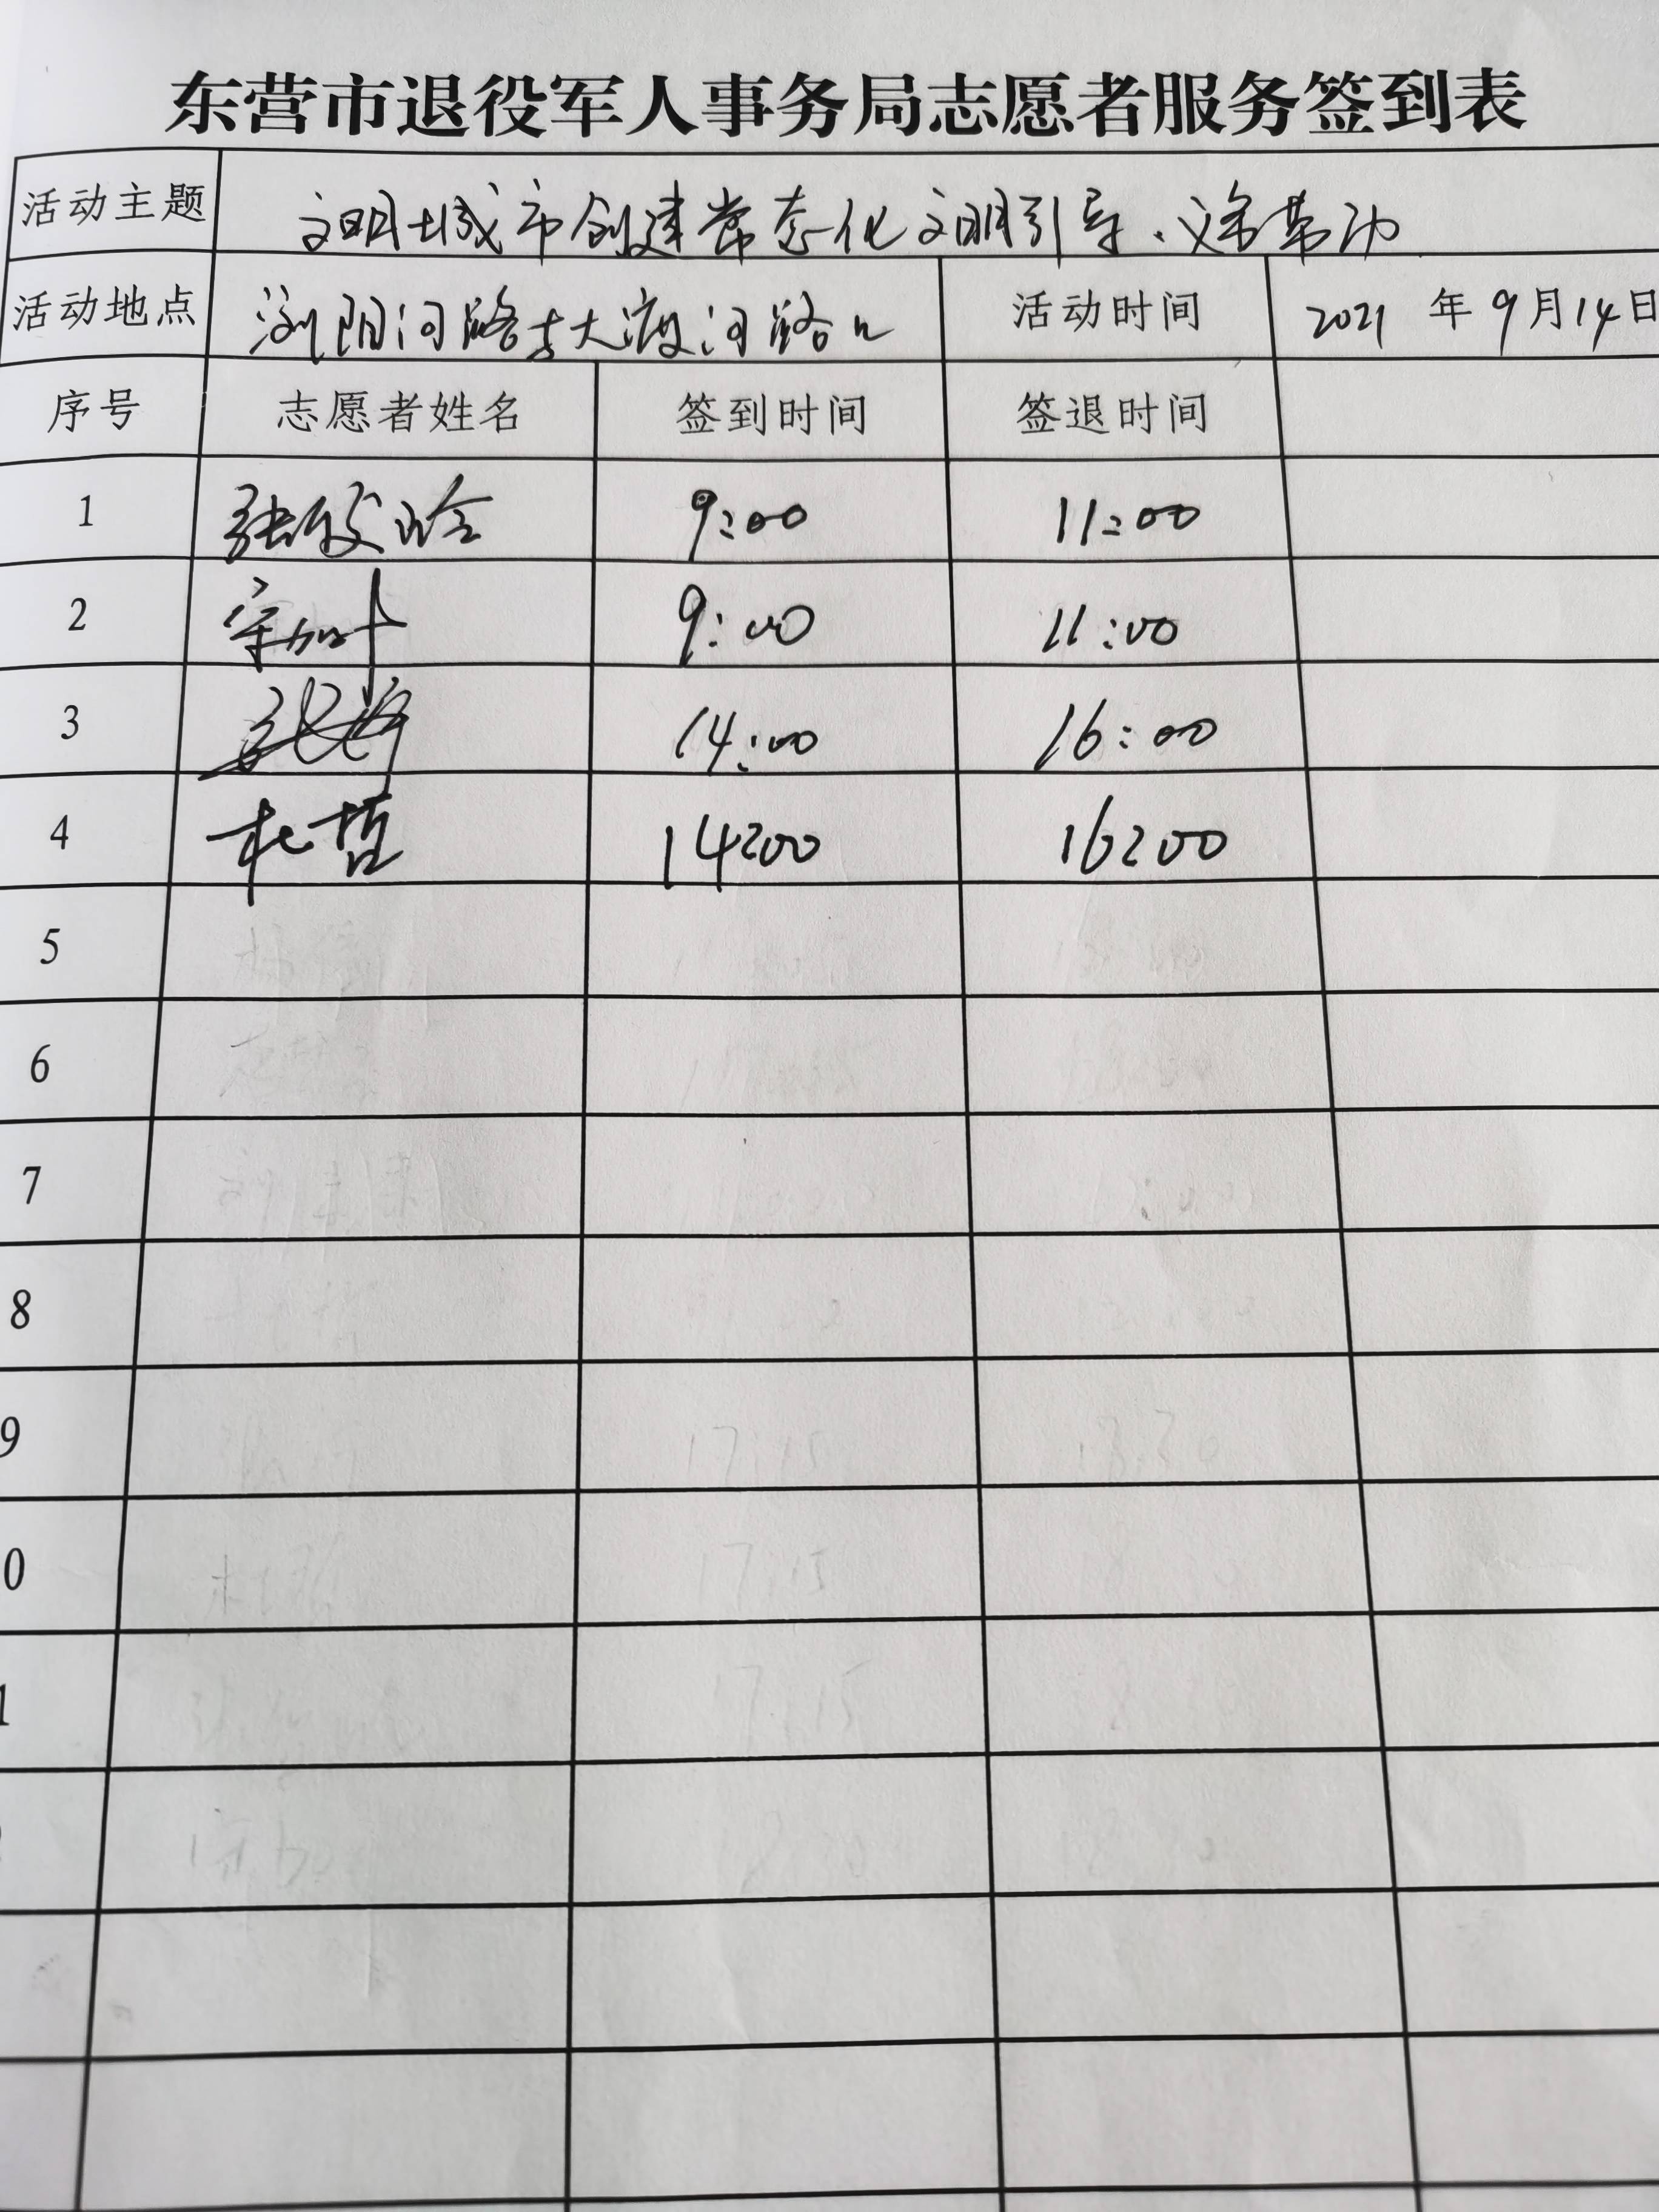 东营市退役军人事务局志愿者服务签到表
活动主题 文明城市创建常态化文明引导、义务劳动
活动地点 浏阳河路与大渡河路口 活动时间 2021 年 9月14日
序号 志愿者姓名 签到时间 签退时间
1 9:00 11:00
2 9:00 11:00
3 14:00 16:00
4 杜哲 14:00 16:00
5
6
7
8
9
0
1